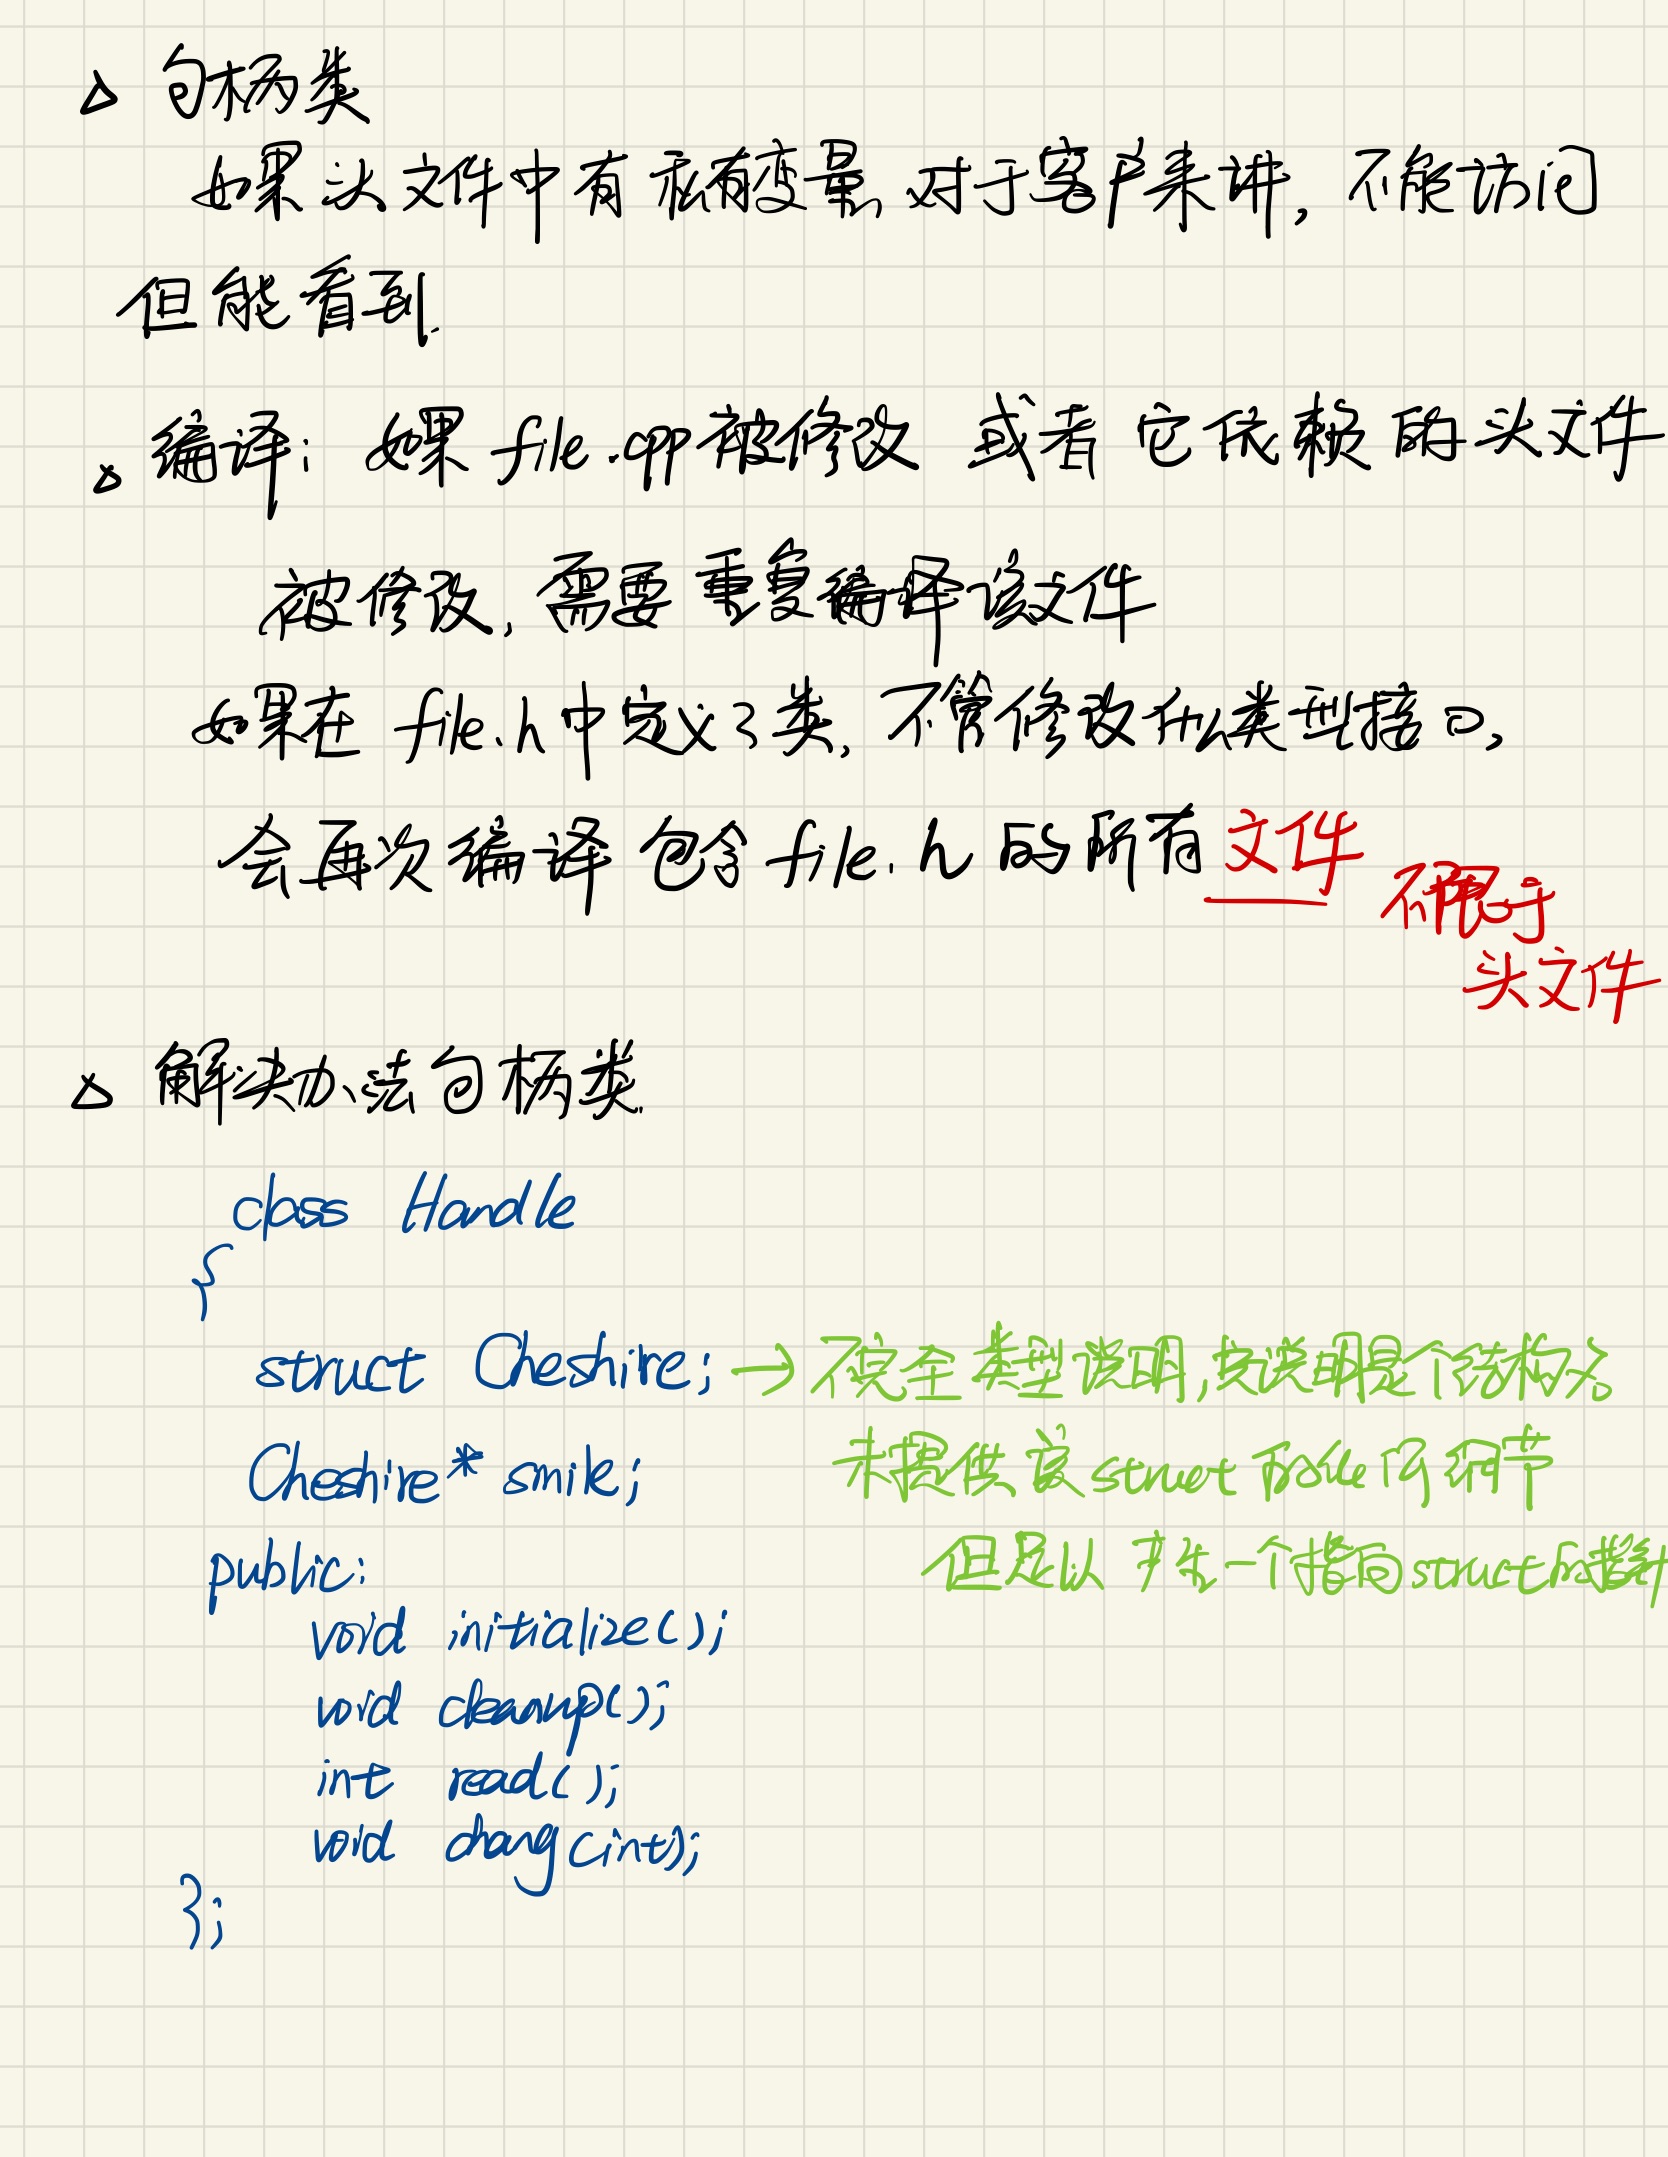 △ 句柄类
如果头文件中有私有变量,对于客户来讲,不能访问
但能看到.
△ 编译: 如果 file.cpp 被修改 或者 它依赖的头文件
被修改,需要重复编译该文件
如果在 file.h 中定义了类,不管修改什么类型接口,
会再次编译包含 file.h 的所有文件
不限于
头文件
△ 解决办法句柄类.
class Handle
{
struct Cheshire; → 不完全类型说明,其说明是个结构名
Cheshire* smile; 未提供该 struct 的任何细节
但足以产生一个指向struct的指针
public:
void initialize();
void cleanup();
int read();
void chang(int);
};